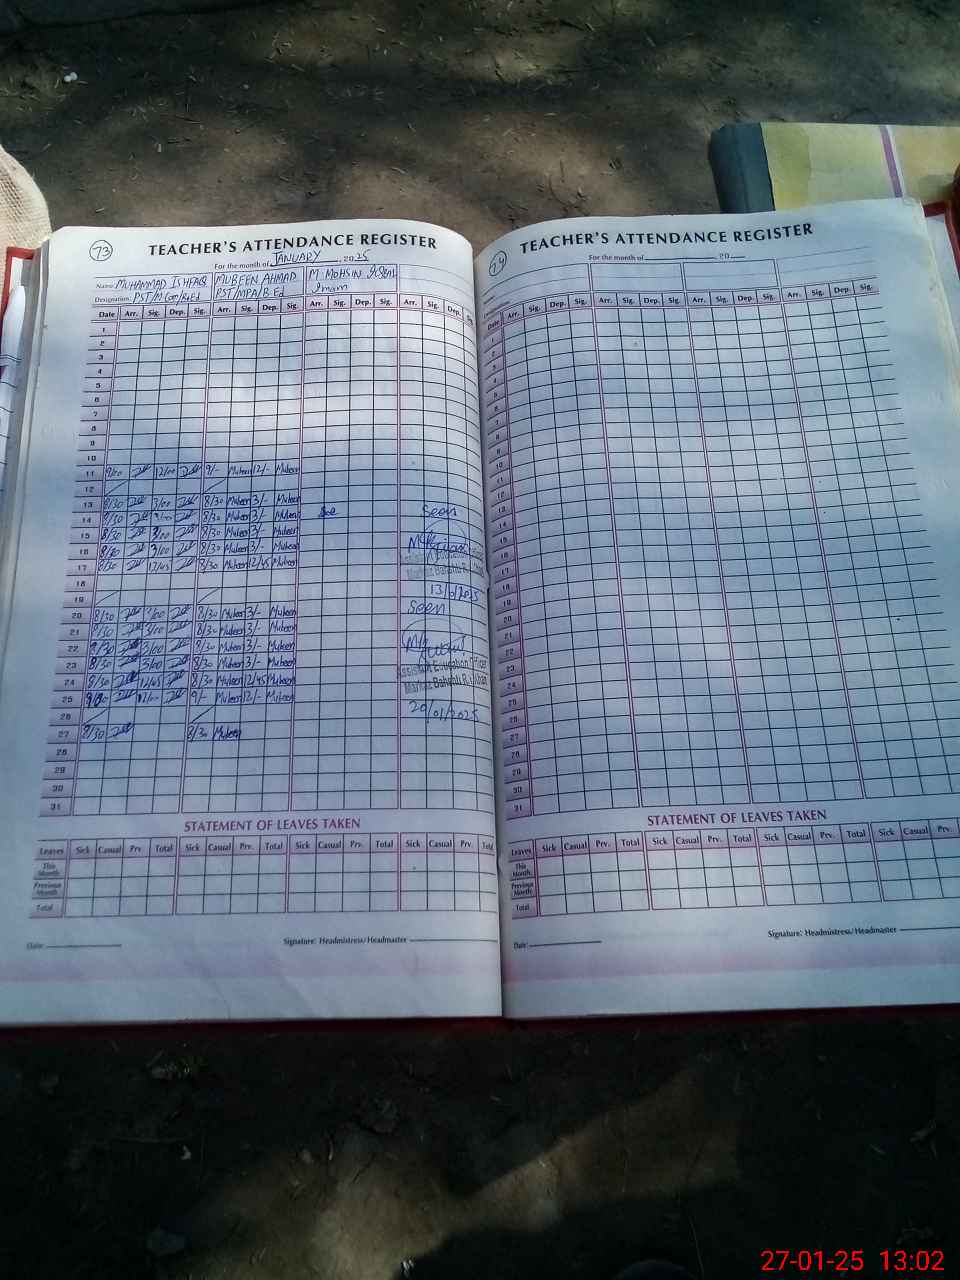 73
TEACHER'S ATTENDANCE REGISTER
For the month of JANUARY, 2025
Name: MUHAMMAD ISHFAQ MUBEEN AHMAD M MOHSIN
Designation: PST/M.Com/B.Ed PST/MPA/B.Ed
Date Arr. Sig. Dep. Sig. Arr. Sig. Dep. Sig. Arr. Sig. Dep. Sig. Arr. Sig. Dep. Sig.
1
2
3
4
5
6
7
8
9
10
11 9/00 12/00 9/- Mubeen 12/- Mubeen
12
13 8/30 3/00 8/30 Mubeen 3/- Mubeen
14 8/30 3/00 8/30 Mubeen 3/- Mubeen Seen
15 8/30 3/00 8/30 Mubeen 3/- Mubeen
16 8/30 3/00 8/30 Mubeen 3/- Mubeen
17 8/30 12/45 8/30 Mubeen 12/45 Mubeen
18
19 13/01/2025
20 8/30 3/00 8/30 Mubeen 3/- Mubeen Seen
21 8/30 3/00 8/30 Mubeen 3/- Mubeen
22 8/30 3/00 8/30 Mubeen 3/- Mubeen
23 8/30 3/00 8/30 Mubeen 3/- Mubeen Assistant Education Officer
24 8/30 12/45 8/30 Mubeen 12/45 Mubeen
25 12/00 9/- Mubeen 12/- Mubeen
26 20/01/2025
27 8/30 8/30 Mubeen
28
29
30
31
STATEMENT OF LEAVES TAKEN
Leaves Sick Casual Prv. Total Sick Casual Prv. Total Sick Casual Prv. Total Sick Casual Prv. Total
This Month
Previous Month
Total
Date: Signature: Headmistress/Headmaster
74
TEACHER'S ATTENDANCE REGISTER
For the month of , 20
Date Arr. Sig. Dep. Sig. Arr. Sig. Dep. Sig. Arr. Sig. Dep. Sig. Arr. Sig. Dep. Sig.
1
2
3
4
5
6
7
8
9
10
11
12
13
14
15
16
17
18
19
20
21
22
23
24
25
26
27
28
29
30
31
STATEMENT OF LEAVES TAKEN
Leaves Sick Casual Prv. Total Sick Casual Prv. Total Sick Casual Prv. Total Sick Casual Prv.
This Month
Previous Month
Total
Date: Signature: Headmistress/Headmaster
27-01-25 13:02